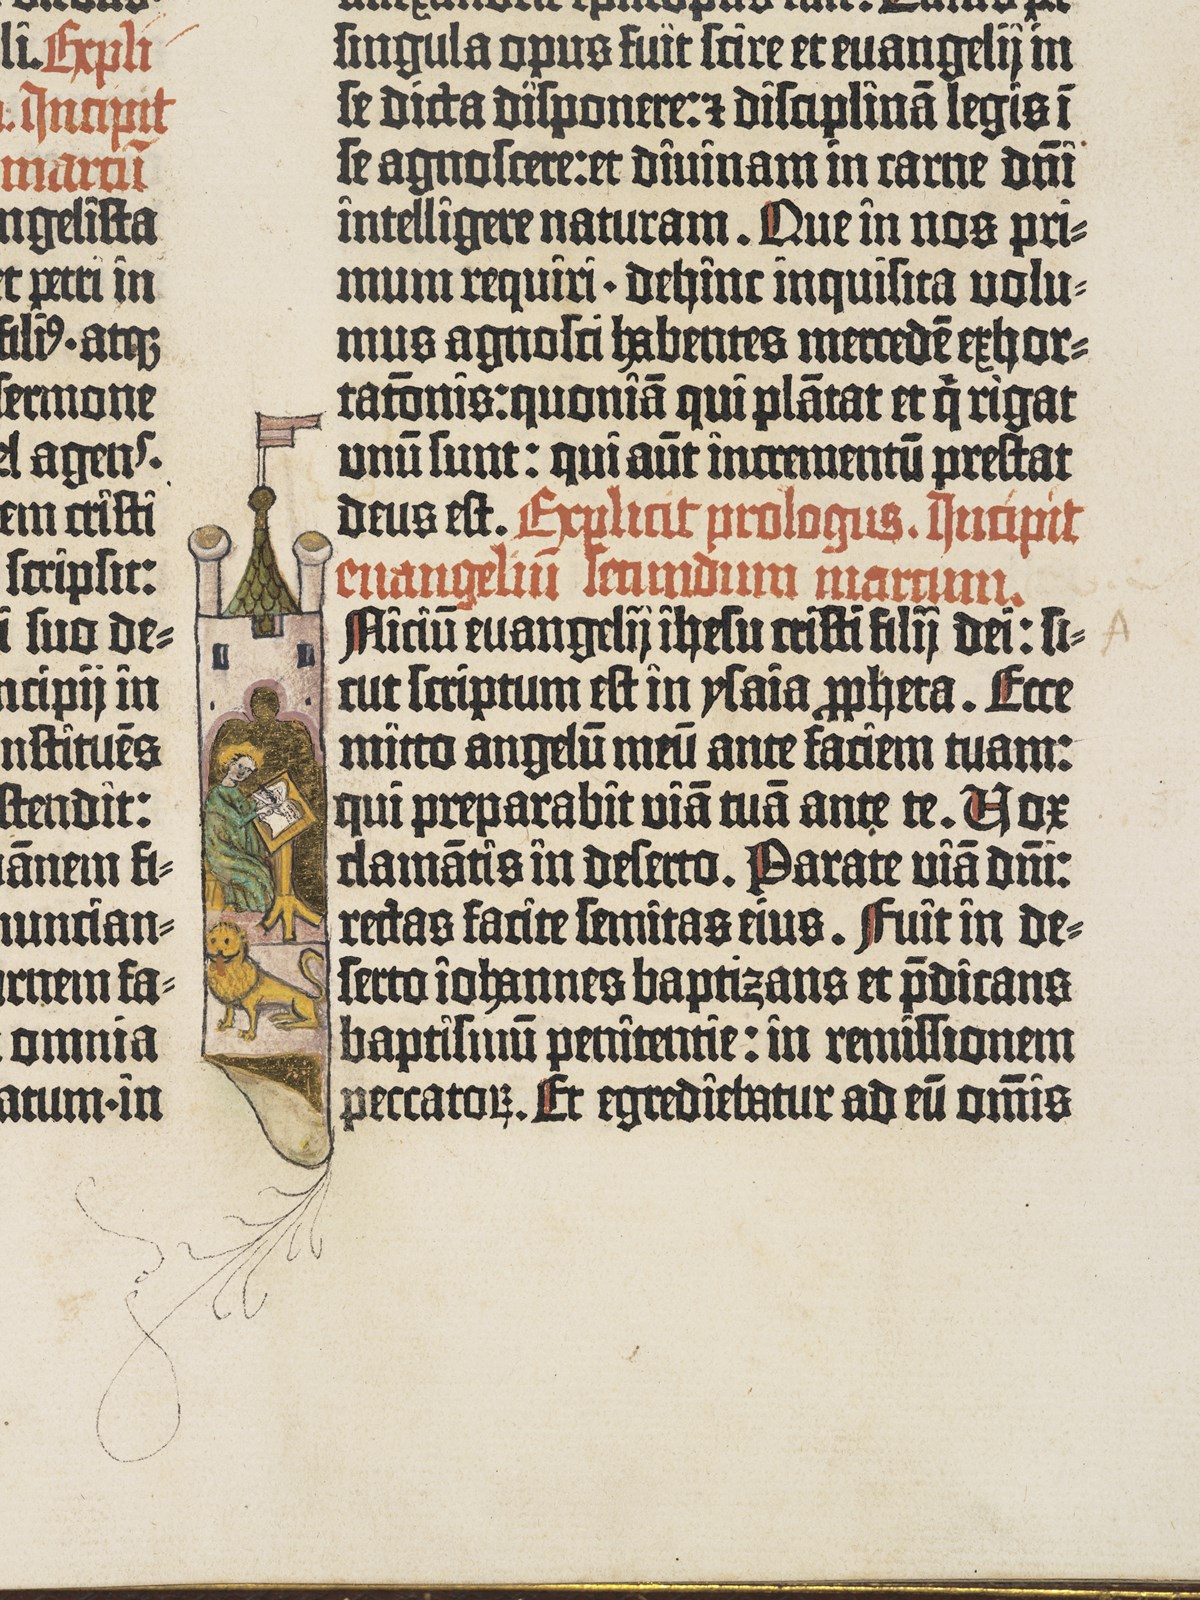 li. Expli
. Incipit
marcū
ngelista
et petri in
filiꝰ· atqꝫ
sermone
el agens·
em cristi
scripsit:
i suo de⸗
ncipij in
nstituēs
stendit:
uānem fi⸗
nuncian⸗
rnem fa⸗
omnia
atum· in
singula opus fuit scire et euangelij in
se dicta disponere: ⁊ disciplinā legis ī
se agnoscere: et diuinam in carne dn̄i
intelligere naturam. Que in nos pri⸗
mum requiri· dehinc inquisita uolu⸗
mus agnosci habentes mercedē exhor⸗
tatōnis: quoniā qui plātat et q̇ rigat
unū sunt: qui aūt incrementū prestat
deus est. Explicit prologus. Incipit
euangeliū secundum marcum.
Niciū euangelij ihesu cristi filij dei: si⸗
cut scriptum est in ysaia ꝓpheta. Ecce
mitto angelū meū ante faciem tuam:
qui preparabit uiā tuā ante te. Vox
clamātis in deserto. Parate uiā dn̄i:
rectas facite semitas eius. Fuit in de⸗
serto iohannes baptizans et p̄dicans
baptismū penitentie: in remissionem
peccatoꝝ. Et egrediebatur ad eū om̄is
A